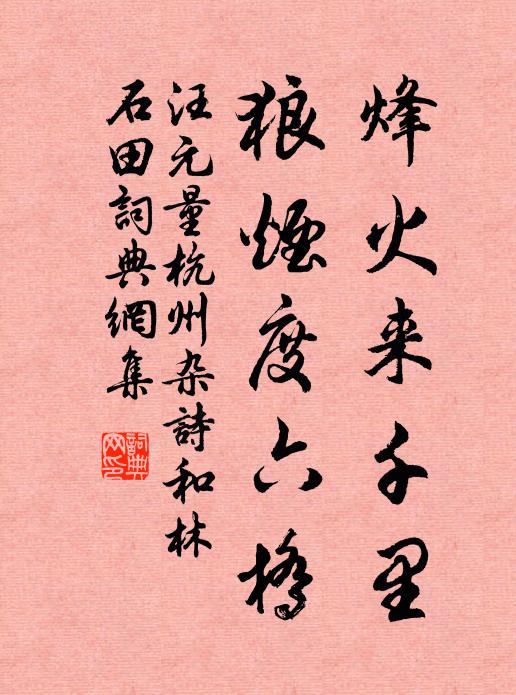 烽火来千里
狼煙度六橋
汪元量杭州杂詩和林
石田詞典網集
詞典网印